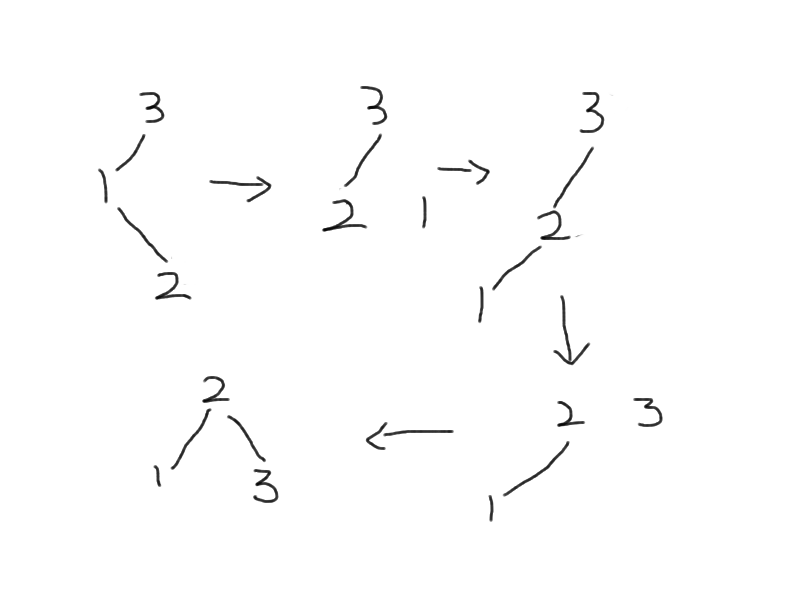 3
1
2
3
2 1
3
2
1
2 3
1
2
1
3